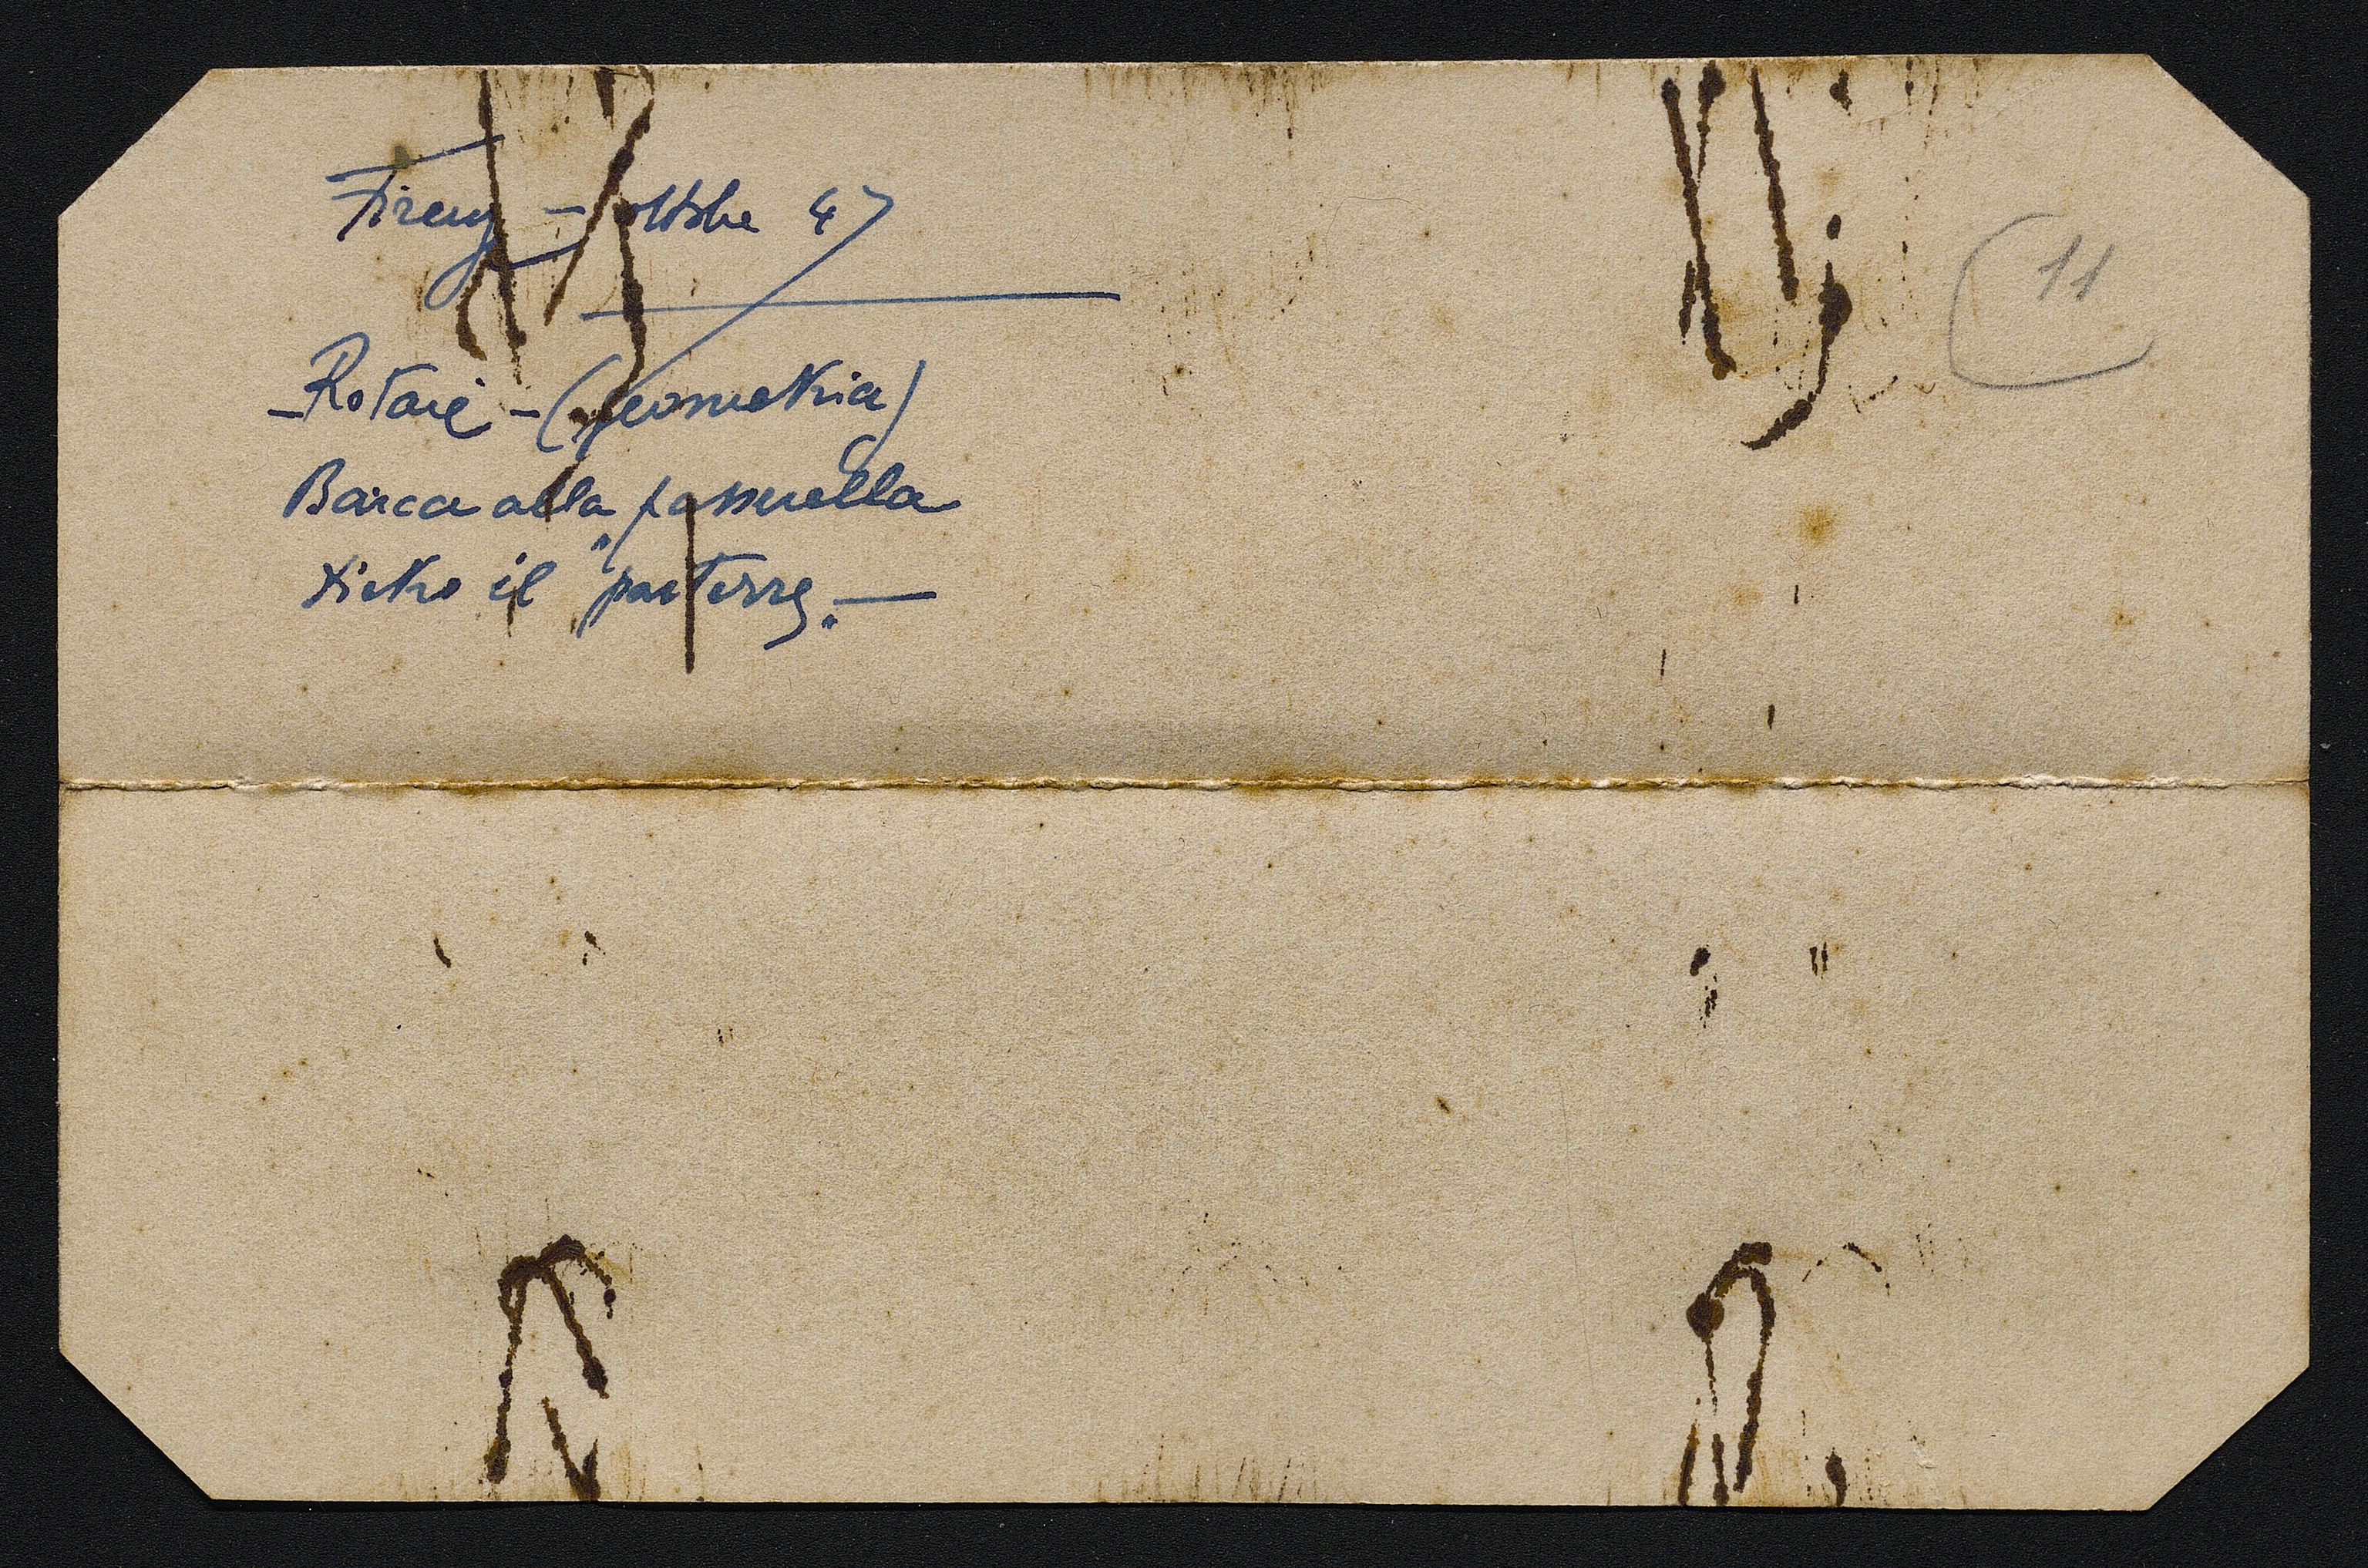 Firenze - ottobre 47
11
- Rotaie - (geometria)
Barca alla passerella
dietro il "parterre". —